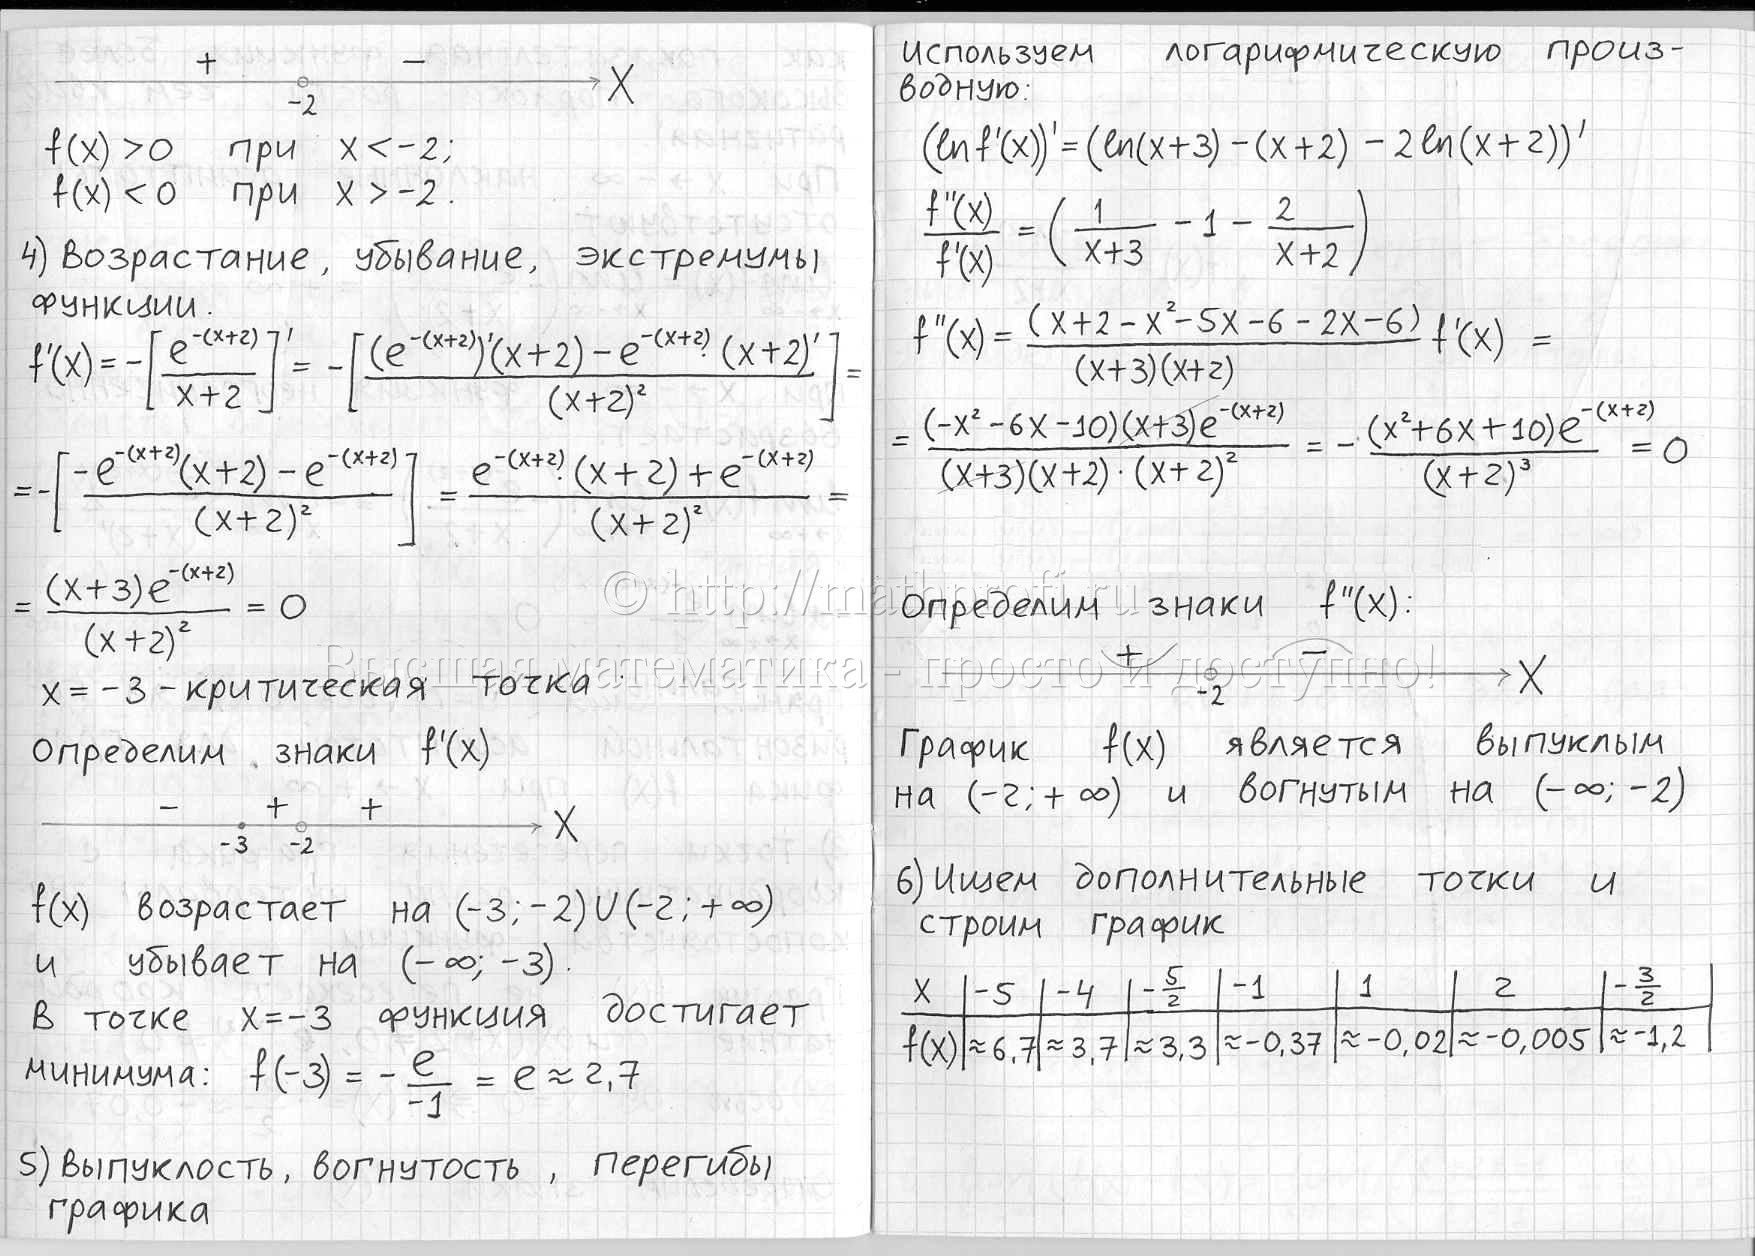 + −
-2 X
f(x) > 0 при x < -2;
f(x) < 0 при x > -2.
4) Возрастание, убывание, экстремумы
функции.
f'(x) = -[e^{-(x+2)}/(x+2)]' = -[((e^{-(x+2)})'(x+2) - e^{-(x+2)}·(x+2)')/(x+2)²] =
= -[(-e^{-(x+2)}(x+2) - e^{-(x+2)})/(x+2)²] = (e^{-(x+2)}·(x+2) + e^{-(x+2)})/(x+2)² =
= (x+3)e^{-(x+2)}/(x+2)² = 0
x = -3 - критическая точка
Определим знаки f'(x)
− + +
-3 -2 X
f(x) возрастает на (-3; -2) U (-2; +∞)
и убывает на (-∞; -3).
В точке x = -3 функция достигает
минимума: f(-3) = - e/-1 = e ≈ 2,7
5) Выпуклость, вогнутость, перегибы
графика
Используем логарифмическую произ-
водную:
(ln f'(x))' = (ln(x+3) - (x+2) - 2 ln(x+2))'
f''(x)/f'(x) = (1/(x+3) - 1 - 2/(x+2))
f''(x) = (x+2-x²-5x-6-2x-6)/((x+3)(x+2)) f'(x) =
= (-x²-6x-10)(x+3)e^{-(x+2)}/((x+3)(x+2)·(x+2)²) = - (x²+6x+10)e^{-(x+2)}/(x+2)³ = 0
© http://mathprofi.ru
Определим знаки f''(x):
Высшая математика - просто и доступно!
+ −
-2 X
График f(x) является выпуклым
на (-2; +∞) и вогнутым на (-∞; -2)
6) Ищем дополнительные точки и
строим график
x | -5 | -4 | -5/2 | -1 | 1 | 2 | -3/2 |
f(x) | ≈6,7 | ≈3,7 | ≈3,3 | ≈-0,37 | ≈-0,02 | ≈-0,005 | ≈-1,2 |